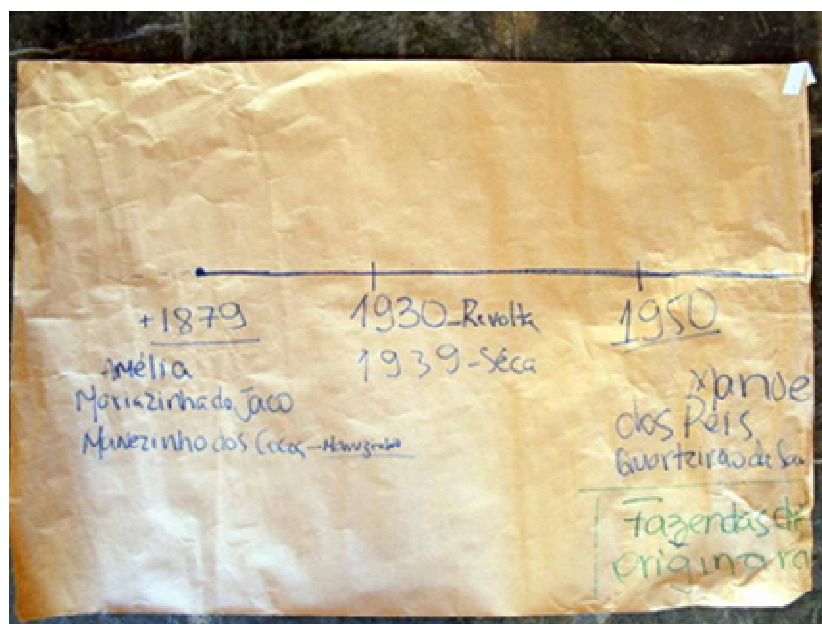 +1879
Amélia
Mariazinha do Jacó
Manezinho dos Cocos
1930-Revolta
1939-Séca
1950
Manoe
dos Réis
Quarteirao da
Fazendas de
originara